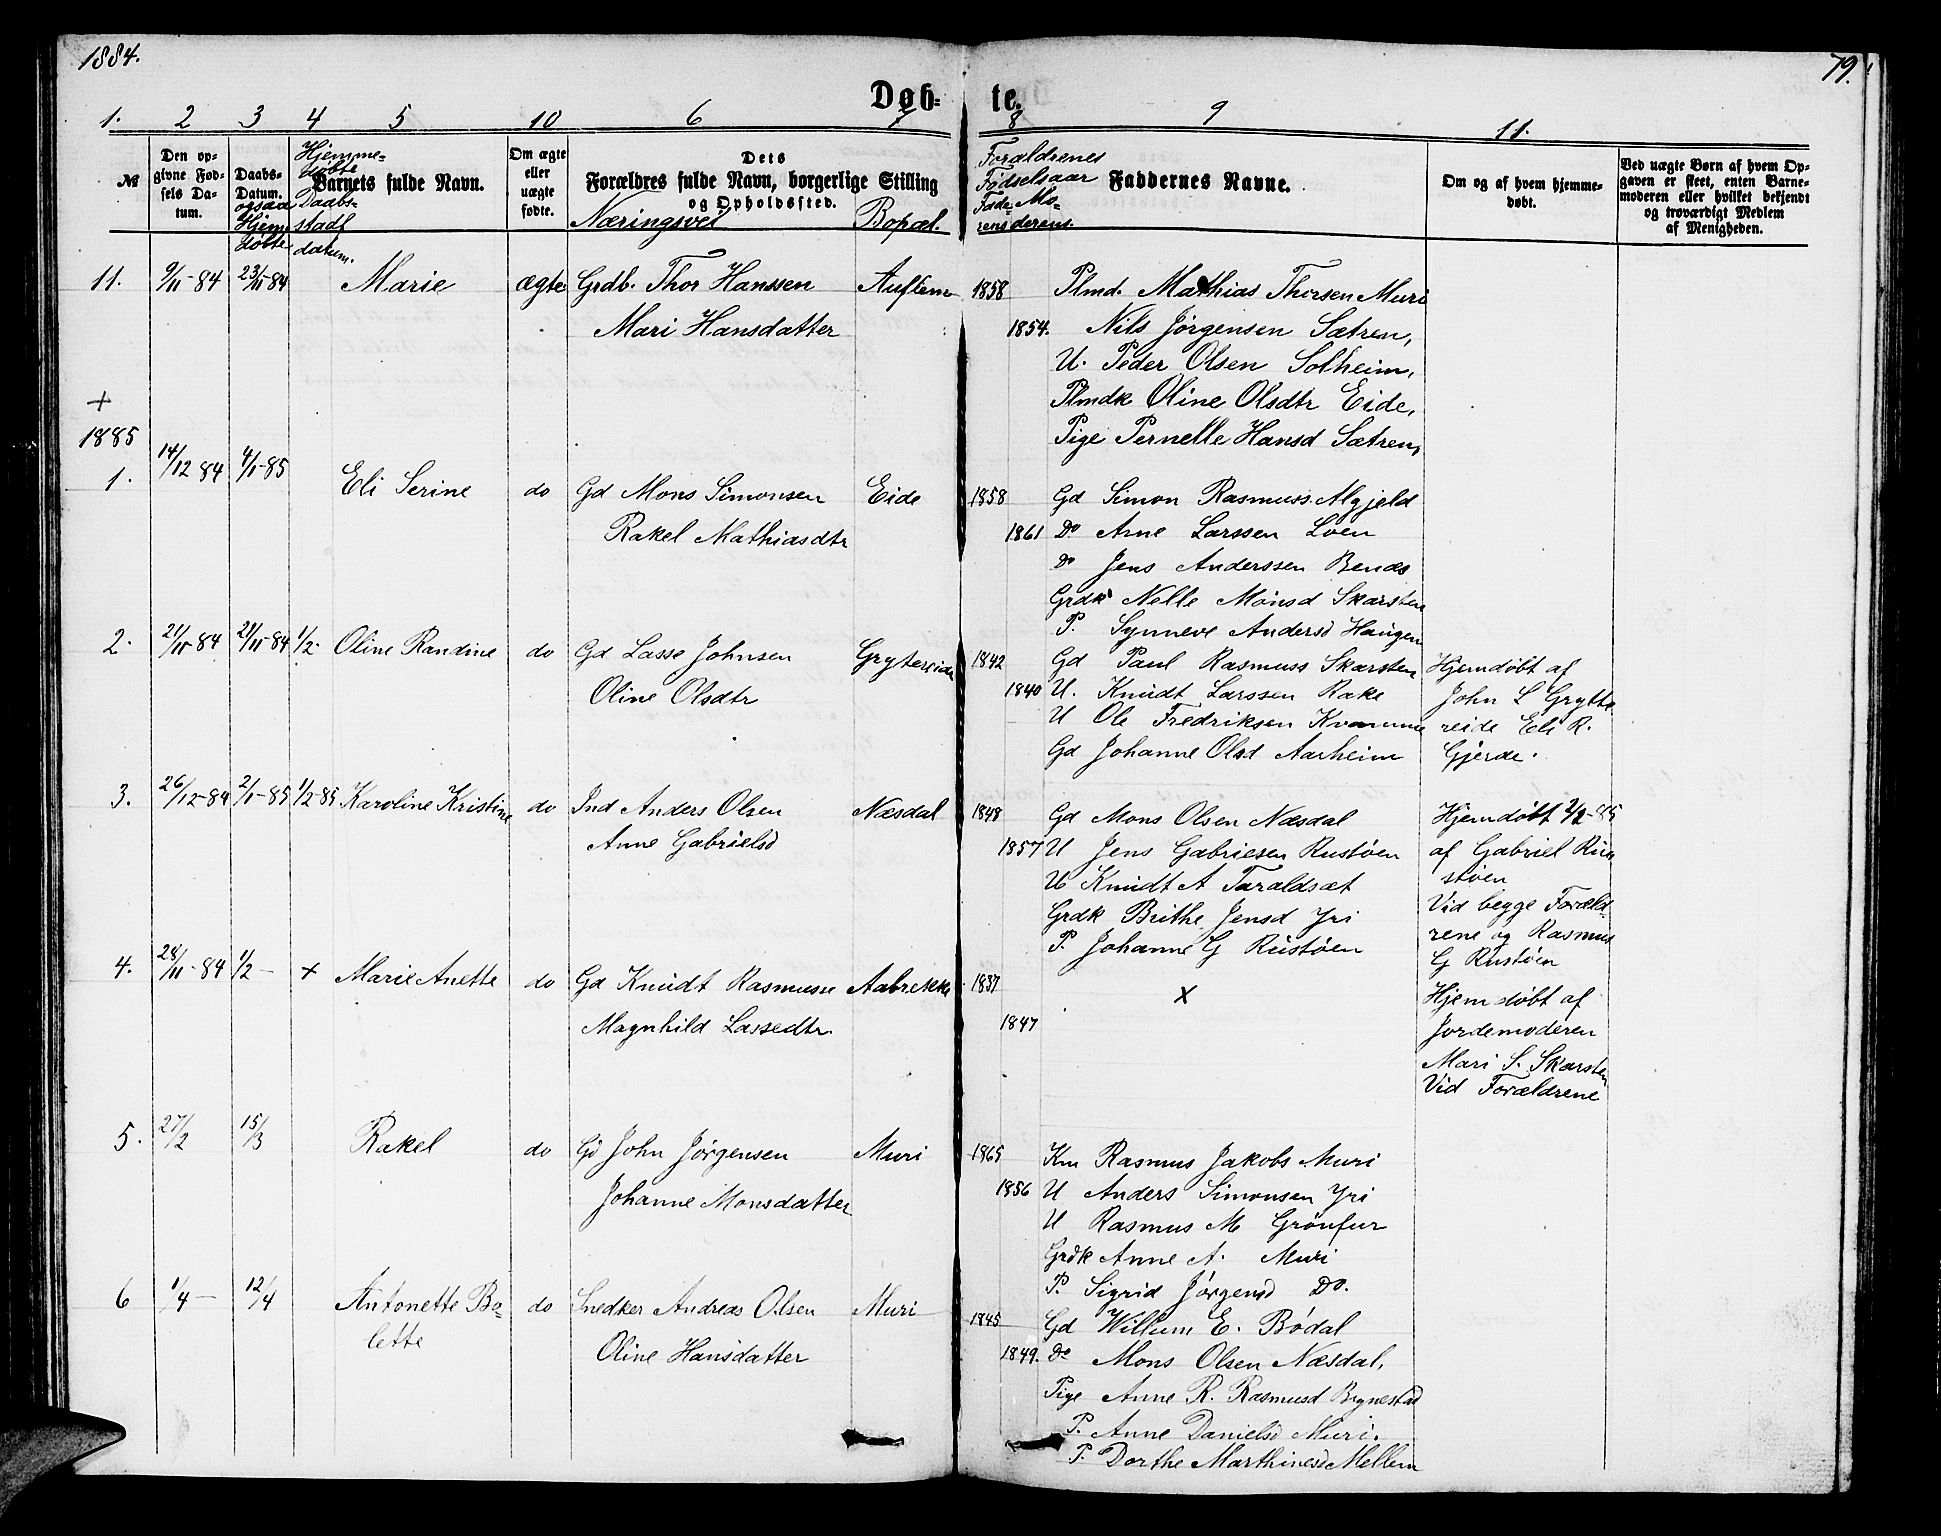 1884.
79.
Døb-
te.
1. 2 3 4 5 10 6 7 8 9 11.
№
Den op-
givne Fød-
sels Da-
tum.
Daabs-
Datum.
ogsaa
Hjem
døbte
Hjemme-
døbte
Daabs-
stadf
datum.
Barnets fulde Navn.
Om ægte
eller
uægte
fødte.
Dets
Forældres fulde Navn, borgerlige Stilling
og Opholdssted.
Næringsvei
Bopæl.
Forældrenes
Fødselsaar
Fade- Mo-
rens derens.
Faddernes Navne.
Om og af hvem hjemme-
døbt.
Ved uægte Børn af hvem Op-
gaven er skeet, enten Barne-
moderen eller hvilket bekjendt
og troværdigt Medlem
af Menigheden.
11. 9/11-84 23/11-84 Marie ægte Grdb. Thor Hanssen Auflem 1858 Plmd. Mathias Thorsen Muri
Mari Hansdatter 1854. Nils Jørgensen Sætren,
U. Peder Olsen Solheim,
Plmdk Oline Olsdtr Eide,
Pige Pernelle Hansd Sætren,
+
1885
1. 14/12 84 4/1-85 Eli Serine do Gd Mons Simonsen Eide 1858 Gd Simon Rasmuss. Mgjeld
Rakel Mathiasdtr 1861 Do Arne Larssen Loen
Do Jens Anderssen Benæs
Grdk Nelle Monsd Skarsten
P. Synneve Andersd Haugen
2. 21/11-84 21/11-84 1/2. Oline Randine do Gd Lasse Johnsen Grytereide 1842 Gd Paul Rasmuss Skarsten Hjemdøbt af
Oline Olsdtr 1840 U. Knudt Larssen Rake John L Grytte
U Ole Fredriksen Kvamme reide Eli R.
Gd Johanne Olsd Aarheim Gjerde.
3. 26/12-84 2/1-85 1/2-85 Karoline Kristine do Ind Anders Olsen Næsdal 1848 Gd Mons Olsen Næsdal Hjemdøbt 2/2-85
Anne Gabrielsd 1857 U Jens Gabriesen Rustøen af Gabriel Rus
U Knudt A Taraldsæt støen
Grdk Brithe Jensd Yri Vid begge Foræld-
P. Johanne G Rustøen rene og Rasmus
G Rustøen
4. 28/11-84 1/2- + Marie Anette do Gd Knudt Rasmusen Aabrekke 1837 x Hjemdøbt af
Magnhild Lassedtr. 1847 Jordemoderen
Mari S. Skarsten
Vid Forældrene
5. 27/2 15/3 Rakel do Gd John Jørgensen Muri 1865 Km Rasmus Jakobs Muri
Johanne Monsdatter 1856 U Anders Simonsen Yri
U Rasmus M Grønfur
Grdk Anne A. Muri
P. Sigrid Jørgensd Do.
6 1/4- 12/4 Antonette Bo- do Snedker Andreas Olsen Muri 1845 Gd Willum E. Bødal
lette Oline Hansdatter 1849. Do Mons Olsen Næsdal,
Pige Anne R. Rasmusd Brynestad
P. Anne Danielsd Muri.
P. Dorthe Marthinesd Mellem